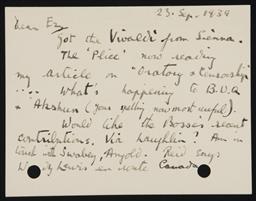 23. Sep. 1939
Dear Ez,
Got the Vivaldi from Sienna.
The 'Plice' now reading
my article on "Oratory & censorship
.... What's happening to B.U.Q
& 'Akshun' (your spelling now most useful).
Would like the Bosse's recent
contributions. Via Laughlin? Am in
touch with Swabey, Angold. Reid says
Wyndy Lewis en route Canada